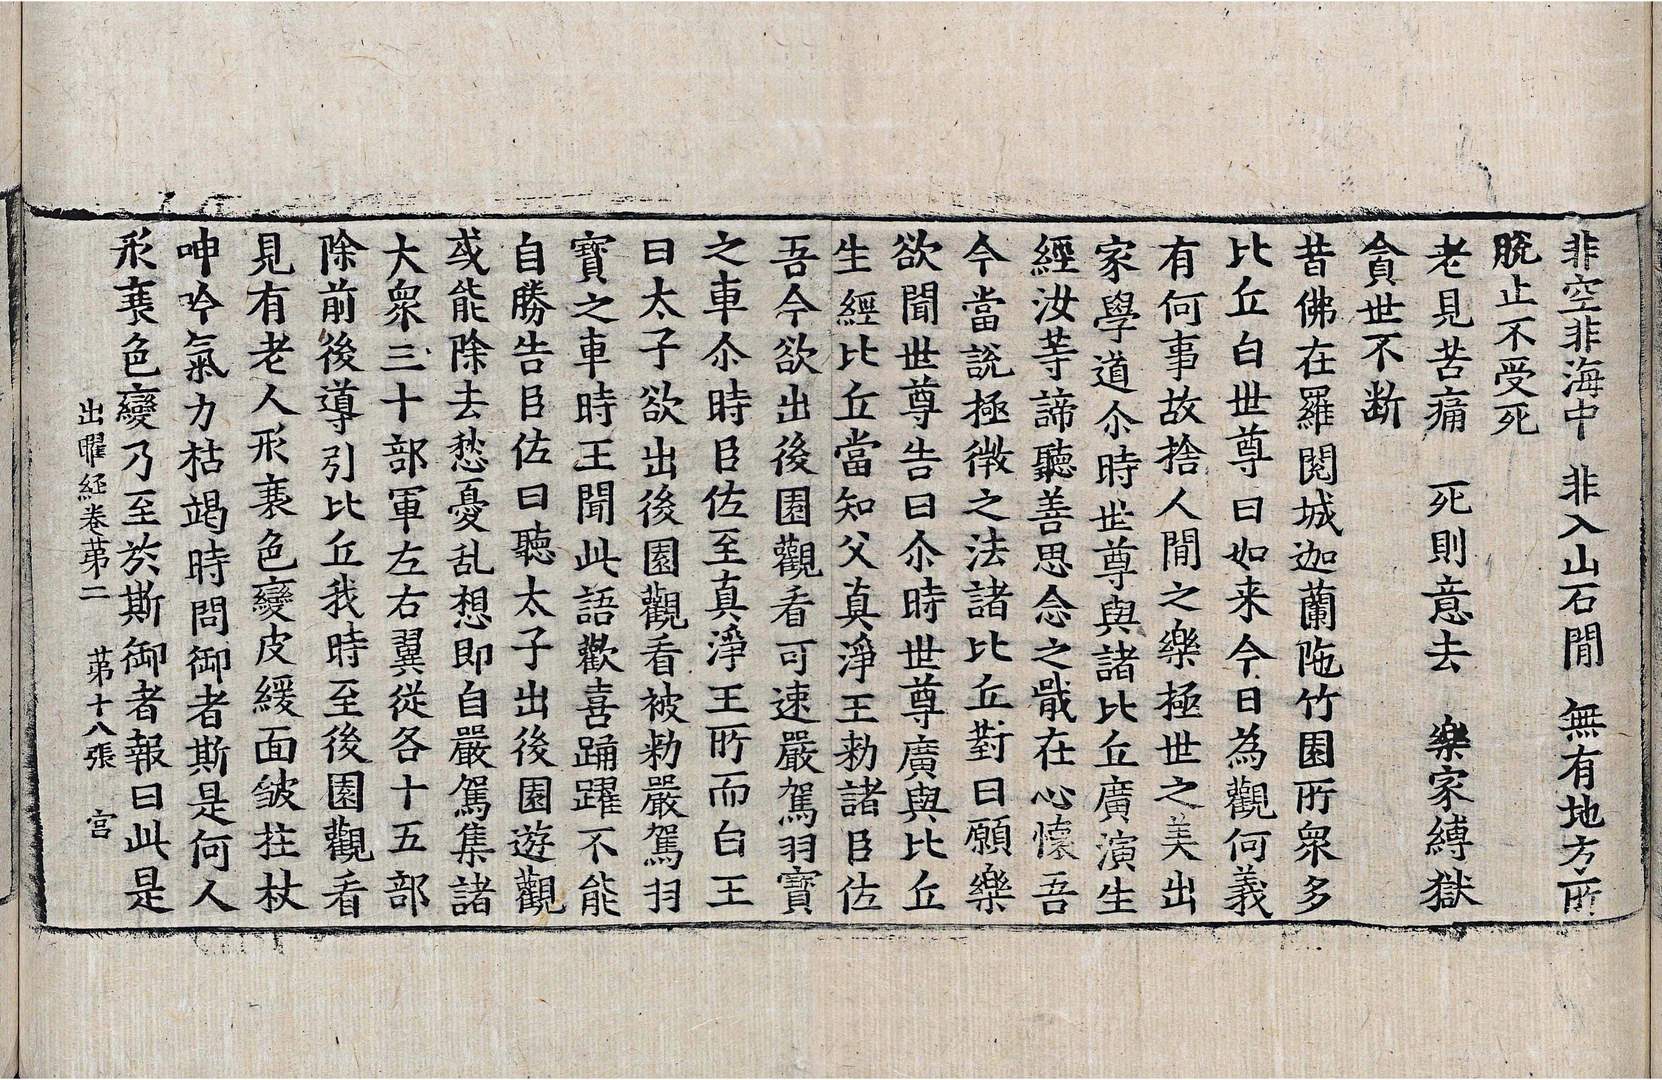 非空非海中　非入山石閒　無有地方所
脫止不受死
老見苦痛　死則意去　樂家縛獄
貪世不断
昔佛在羅閱城迦蘭陁竹園所衆多
比丘白世尊曰如来今日為觀何義
有何事故捨人閒之樂極世之美出
家學道尒時世尊與諸比丘廣演生
經汝等諦聽善思念之戢在心懷吾
今當說極微之法諸比丘對曰願樂
欲聞世尊告曰尒時世尊廣與比丘
生經比丘當知父真淨王勑諸臣佐
吾今欲出後園觀看可速嚴駕羽寶
之車尒時臣佐至真淨王所而白王
曰太子欲出後園觀看被勑嚴駕羽
寶之車時王聞此語歡喜踊躍不能
自勝告臣佐曰聽太子出後園遊觀
或能除去愁憂乱想即自嚴駕集諸
大衆三十部軍左右翼従各十五部
除前後導引比丘我時至後園觀看
見有老人形衰色變皮緩面皺拄杖
呻吟氣力枯竭時問御者斯是何人
形衰色變乃至於斯御者報曰此是
出曜経卷苐二　苐十八張　宫